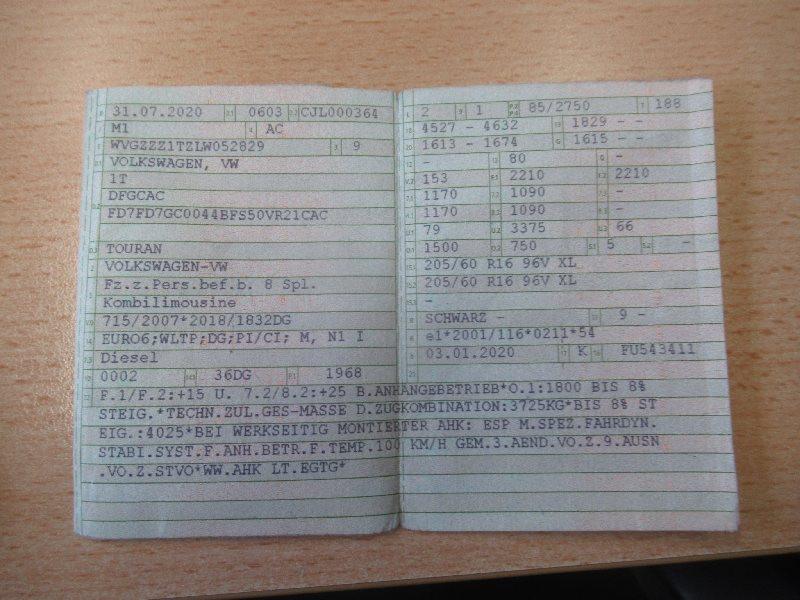 31.07.2020 0603 CJL000364
M1 AC
WVGZZZ1TZLW052829 9
VOLKSWAGEN, VW
1T
DFGCAC
FD7FD7GC0044BFS50VR21CAC
TOURAN
VOLKSWAGEN-VW
Fz.z.Pers.bef.b. 8 Spl.
Kombilimousine
715/2007*2018/1832DG
EURO6;WLTP;DG;PI/CI; M, N1 I
Diesel
0002 36DG 1968
2 1 85/2750 188
4527 - 4632 1829 - -
1613 - 1674 1615 - -
- 80 -
153 2210 2210
1170 1090 -
1170 1090 -
79 3375 66
1500 750 5 -
205/60 R16 96V XL
205/60 R16 96V XL
-
SCHWARZ - 9 -
e1*2001/116*0211*54
03.01.2020 K FU543411
F.1/F.2:+15 U. 7.2/8.2:+25 B.ANHANGEBETRIEB*O.1:1800 BIS 8%
STEIG.*TECHN.ZUL.GES-MASSE D.ZUGKOMBINATION:3725KG*BIS 8% ST
EIG.:4025*BEI WERKSEITIG MONTIERTER AHK: ESP M.SPEZ.FAHRDYN.
STABI.SYST.F.ANH.BETR.F.TEMP.100 KM/H GEM.3.AEND.VO.Z.9.AUSN
.VO.Z.STVO*WW.AHK LT.EGTG*